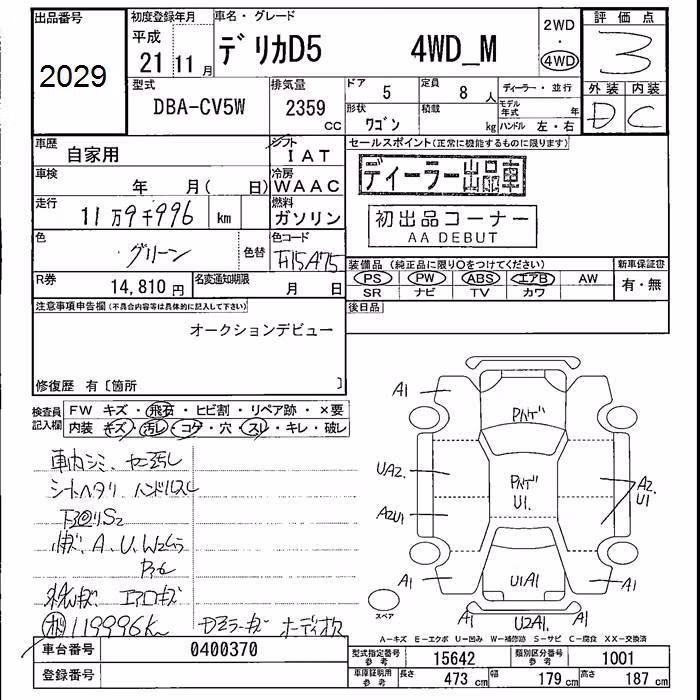 出品番号 2029
初度登録年月 平成 21年 11月
車名・グレード デリカD5 4WD_M
2WD・4WD
評価点 3
外装 内装
D C
型式 DBA-CV5W
排気量 2359 CC
ドア 5
定員 8 人
形状 ワゴン
積載 kg
ディーラー・並行
モデル年式 年
ハンドル 左・右
車歴 自家用
シフト IAT
車検 年 月( 日)
冷房 WAAC
走行 11万9千996 km
燃料 ガソリン
色 グリーン
色替
色コード
R券 14,810円
名変通知期限 月 日
セールスポイント(正常に機能するものに限ります)
ディーラー出品車
初出品コーナー
AA DEBUT
装備品(純正品に限り○をつけてください)
PS PW ABS エアB AW
SR ナビ TV カワ
新車保証書
有・無
後日品
注意事項申告欄(不具合内容等は具体的に記入して下さい)
オークションデビュー
修復歴 有〔箇所 〕
検査員記入欄
FW キズ・飛石・ヒビ割・リペア跡・×要
内装 キズ・汚レ・コゲ・穴・スレ・キレ・破レ
車内シミ、汚レ
シートヘタリ ハンドルスレ
下回リS2
A.U.W2
エアロキズ
119996K Dミラーキズ
A1
PAｹﾞ
UA2.
PAｹﾞ
U1.
A2.
U1
A2U1
A1
U1A1
A1
スペア
A1
U2A1.
A1
A―キズ E―エクボ U―凹み W―補修跡 S―サビ C―腐食 XX―交換済
車台番号 0400370
登録番号
型式指定番号 参考 15642
類別区分番号 参考 1001
車庫証明用 参考 長さ 473 cm 幅 179 cm 高さ 187 cm